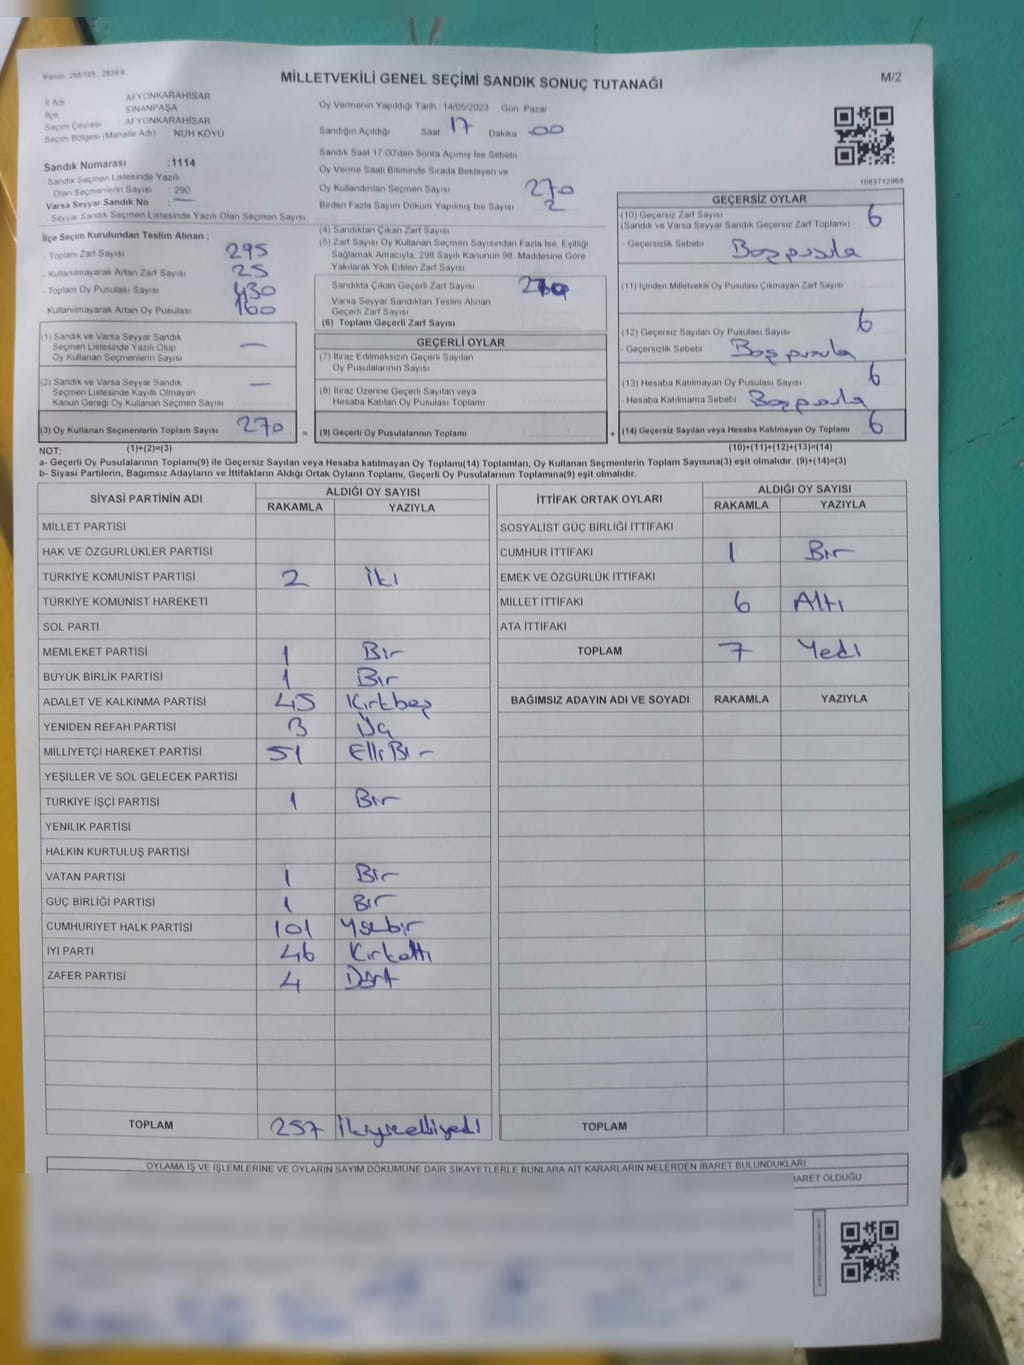 Kanun: 298/105 , 2839/4
MİLLETVEKİLİ GENEL SEÇİMİ SANDIK SONUÇ TUTANAĞI
M/2
İl Adı AFYONKARAHİSAR
İlçe SİNANPAŞA
Seçim Çevresi AFYONKARAHİSAR
Seçim Bölgesi (Mahalle Adı) NUH KÖYÜ
Oy Vermenin Yapıldığı Tarih 14/05/2023 Gün Pazar
Sandığın Açıldığı Saat 17 Dakika 00
Sandık Saat 17:00'den Sonra Açımış İse Sebebi
Oy Verme Saati Bitiminde Sırada Bekleyen ve
Oy Kullandırılan Seçmen Sayısı 270
Birden Fazla Sayım Döküm Yapılmış İse Sayısı 2
Sandık Numarası :1114
Sandık Seçmen Listesinde Yazılı
Olan Seçmenlerin Sayısı : 290
Varsa Seyyar Sandık No : —
Seyyar Sandık Seçmen Listesinde Yazılı Olan Seçmen Sayısı
İlçe Seçim Kurulundan Teslim Alınan :
- Toplam Zarf Sayısı 295
- Kullanılmayarak Artan Zarf Sayısı 25
- Toplam Oy Pusulası Sayısı 430
- Kullanılmayarak Artan Oy Pusulası 160
(1) Sandık ve Varsa Seyyar Sandık
Seçmen Listesinde Yazılı Olup
Oy Kullanan Seçmenlerin Sayısı —
(2) Sandık ve Varsa Seyyar Sandık
Seçmen Listesinde Kayıtlı Olmayan
Kanun Gereği Oy Kullanan Seçmen Sayısı —
(3) Oy Kullanan Seçmenlerin Toplam Sayısı 270 =
(4) Sandıktan Çıkan Zarf Sayısı
(5) Zarf Sayısı Oy Kullanan Seçmen Sayısından Fazla İse, Eşitliği
Sağlamak Amacıyla, 298 Sayılı Kanunun 98. Maddesine Göre
Yakılarak Yok Edilen Zarf Sayısı
Sandıkta Çıkan Geçerli Zarf Sayısı
Varsa Seyyar Sandıktan Teslim Alınan
Geçerli Zarf Sayısı
(6) Toplam Geçerli Zarf Sayısı
GEÇERLİ OYLAR
(7) İtiraz Edilmeksizin Geçerli Sayılan
Oy Pusulalarının Sayısı
(8) İtiraz Üzerine Geçerli Sayılan veya
Hesaba Katılan Oy Pusulası Toplamı
(9) Geçerli Oy Pusulalarının Toplamı +
1083712968
GEÇERSİZ OYLAR
(10) Geçersiz Zarf Sayısı 6
(Sandık ve Varsa Seyyar Sandık Geçersiz Zarf Toplamı)
- Geçersizlik Sebebi Boş pusula
(11) İçinden Milletvekili Oy Pusulası Çıkmayan Zarf Sayısı
(12) Geçersiz Sayılan Oy Pusulası Sayısı 6
- Geçersizlik Sebebi Boş pusula
(13) Hesaba Katılmayan Oy Pusulası Sayısı 6
- Hesaba Katılmama Sebebi Boş pusula
(14) Geçersiz Sayılan veya Hesaba Katılmayan Oy Toplamı 6
NOT: (1)+(2)=(3) (10)+(11)+(12)+(13)=(14)
a- Geçerli Oy Pusulalarının Toplamı(9) ile Geçersiz Sayılan veya Hesaba katılmayan Oy Toplamı(14) Toplamları, Oy Kullanan Seçmenlerin Toplam Sayısına(3) eşit olmalıdır. (9)+(14)=(3)
b- Siyasi Partilerin, Bağımsız Adayların ve İttifakların Aldığı Ortak Oyların Toplamı, Geçerli Oy Pusulalarının Toplamına(9) eşit olmalıdır.
SİYASİ PARTİNİN ADI ALDIĞI OY SAYISI
RAKAMLA YAZIYLA
MİLLET PARTİSİ
HAK VE ÖZGÜRLÜKLER PARTİSİ
TÜRKİYE KOMÜNİST PARTİSİ 2 İki
TÜRKİYE KOMÜNİST HAREKETİ
SOL PARTİ
MEMLEKET PARTİSİ 1 Bir
BÜYÜK BİRLİK PARTİSİ 1 Bir
ADALET VE KALKINMA PARTİSİ 45 Kırkbeş
YENİDEN REFAH PARTİSİ 3 Üç
MİLLİYETÇİ HAREKET PARTİSİ 51 Elli Bir
YEŞİLLER VE SOL GELECEK PARTİSİ
TÜRKİYE İŞÇİ PARTİSİ 1 Bir
YENİLİK PARTİSİ
HALKIN KURTULUŞ PARTİSİ
VATAN PARTİSİ 1 Bir
GÜÇ BİRLİĞİ PARTİSİ 1 Bir
CUMHURİYET HALK PARTİSİ 101 Yüzbir
İYİ PARTİ 46 Kırkaltı
ZAFER PARTİSİ 4 Dört
TOPLAM 257 İkiyüzelliyedi
İTTİFAK ORTAK OYLARI ALDIĞI OY SAYISI
RAKAMLA YAZIYLA
SOSYALİST GÜÇ BİRLİĞİ İTTİFAKI
CUMHUR İTTİFAKI 1 Bir
EMEK VE ÖZGÜRLÜK İTTİFAKI
MİLLET İTTİFAKI 6 Altı
ATA İTTİFAKI
TOPLAM 7 Yedi
BAĞIMSIZ ADAYIN ADI VE SOYADI RAKAMLA YAZIYLA
TOPLAM
OYLAMA İŞ VE İŞLEMLERİNE VE OYLARIN SAYIM DÖKÜMÜNE DAİR ŞİKAYETLERLE BUNLARA AİT KARARLARIN NELERDEN İBARET BULUNDUKLARI
İBARET OLDUĞU